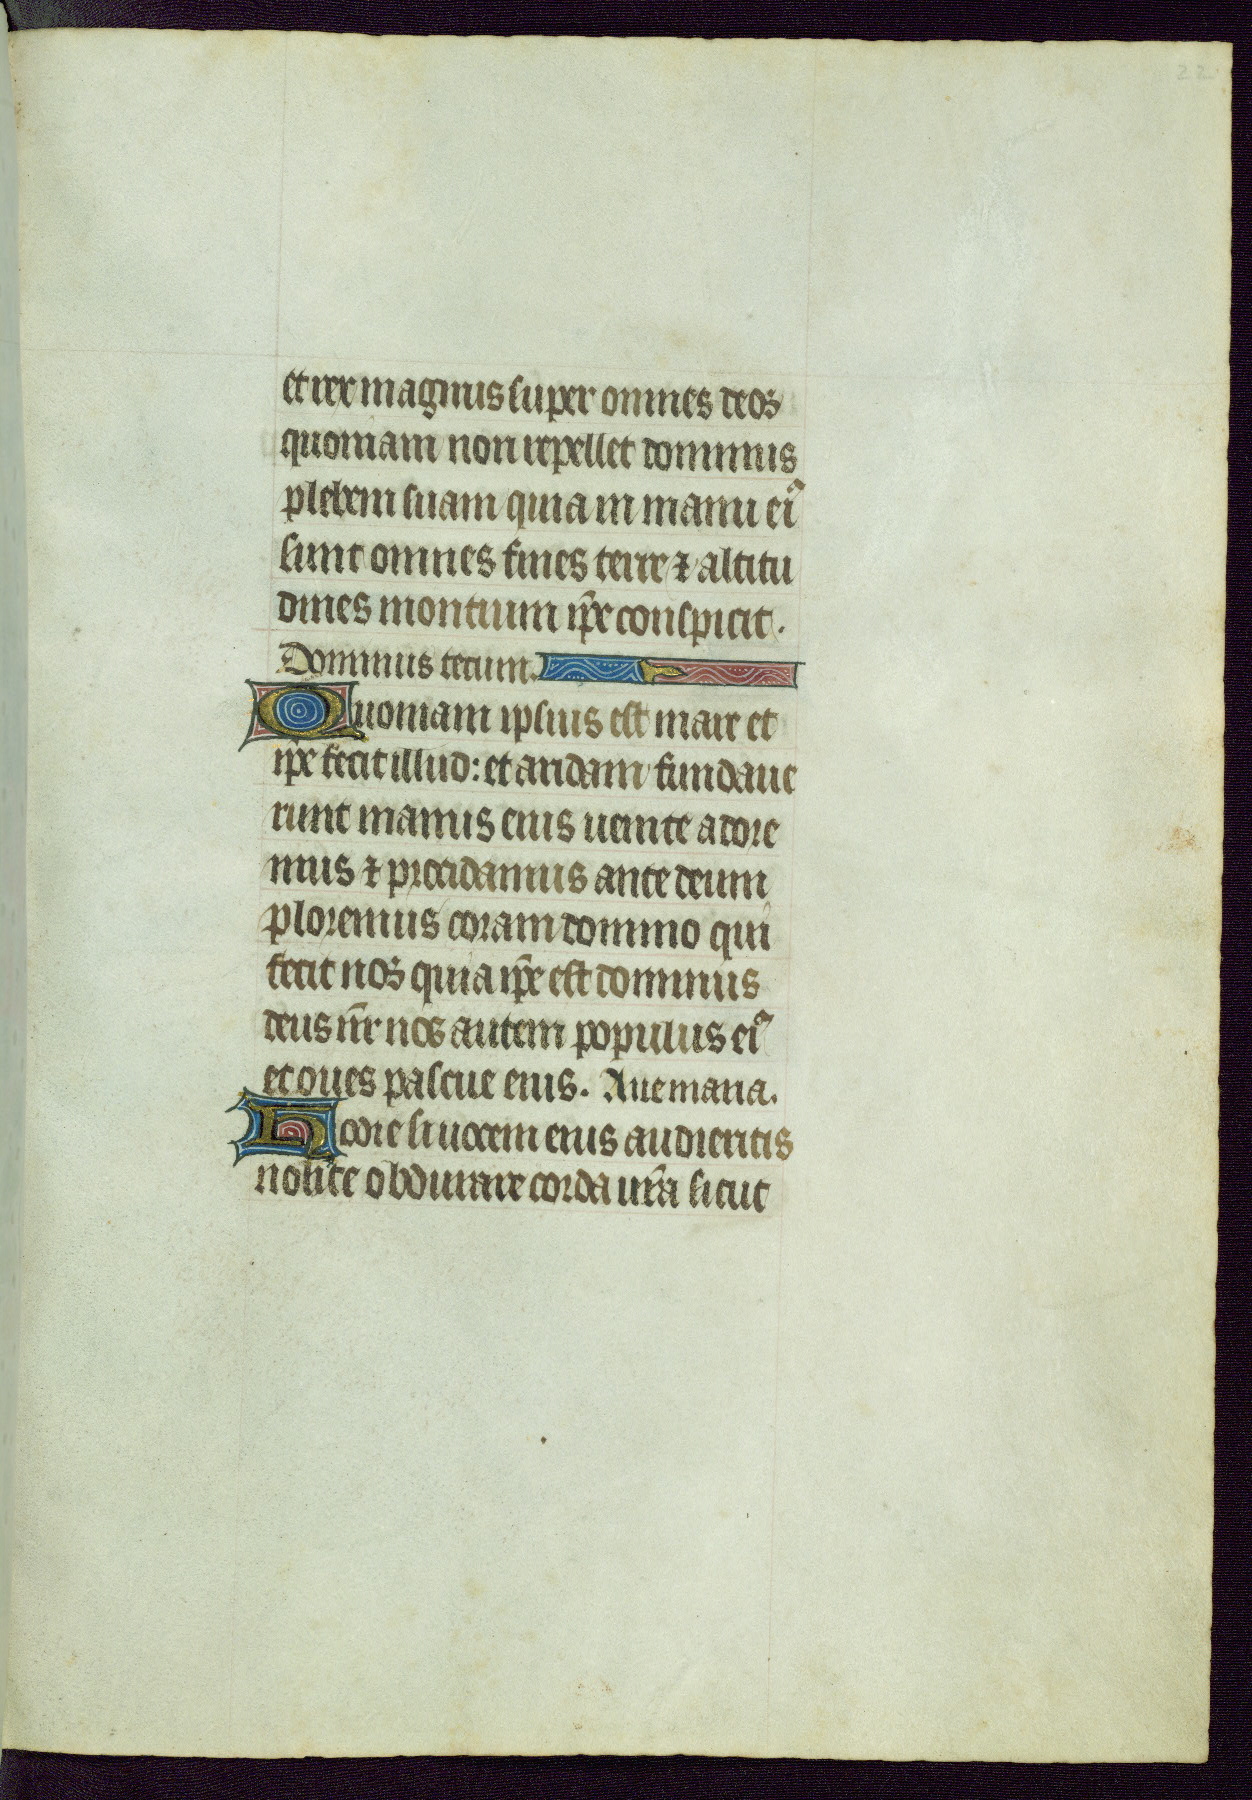 22
et rex magnus super omnes deos
quoniam non repellet dominus
plebem suam quia in manu ei᾿
sunt omnes fines terre ⁊ altitu
dines montium ip̃e conspicit.
Dominus tecum.
Quoniam ipsius est mare et
ip̃e fecit illud: et aridam fundaue
runt manus eius uenite adore
mus ⁊ procidamus ante deum
ploremus coram domino qui
fecit nos quia ip̃e est dominus
deus nr̃ nos autem populus ei᾿
et oues pascue eius. Aue maria.
Hodie si uocem eius audieritis
nolite obdurare corda ur̃a sicut